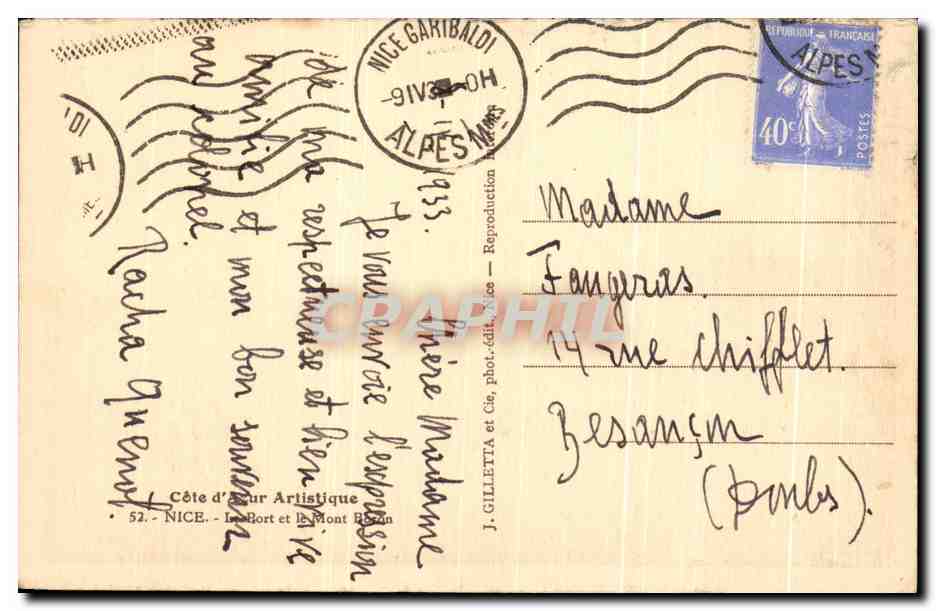 NICE GARIBALDI
-9 IV 33 -0H
ALPES Mmes
REPUBLIQUE FRANÇAISE
ALPES M
40c
POSTES
DI
H
1933.
Chère Madame
Je vous envoie l'expression
de ma respectueuse et bien vive
amitié et mon bon souvenir
au colonel.
Racha Quenot.
J. GILLETTA et Cie, phot.-édit., Nice — Reproduction
Madame
Faugeras.
14 rue Chifflet.
Besançon
(Doubs).
Côte d'Azur Artistique
52. - NICE. - Le Port et le Mont Boron
CPAPHIL